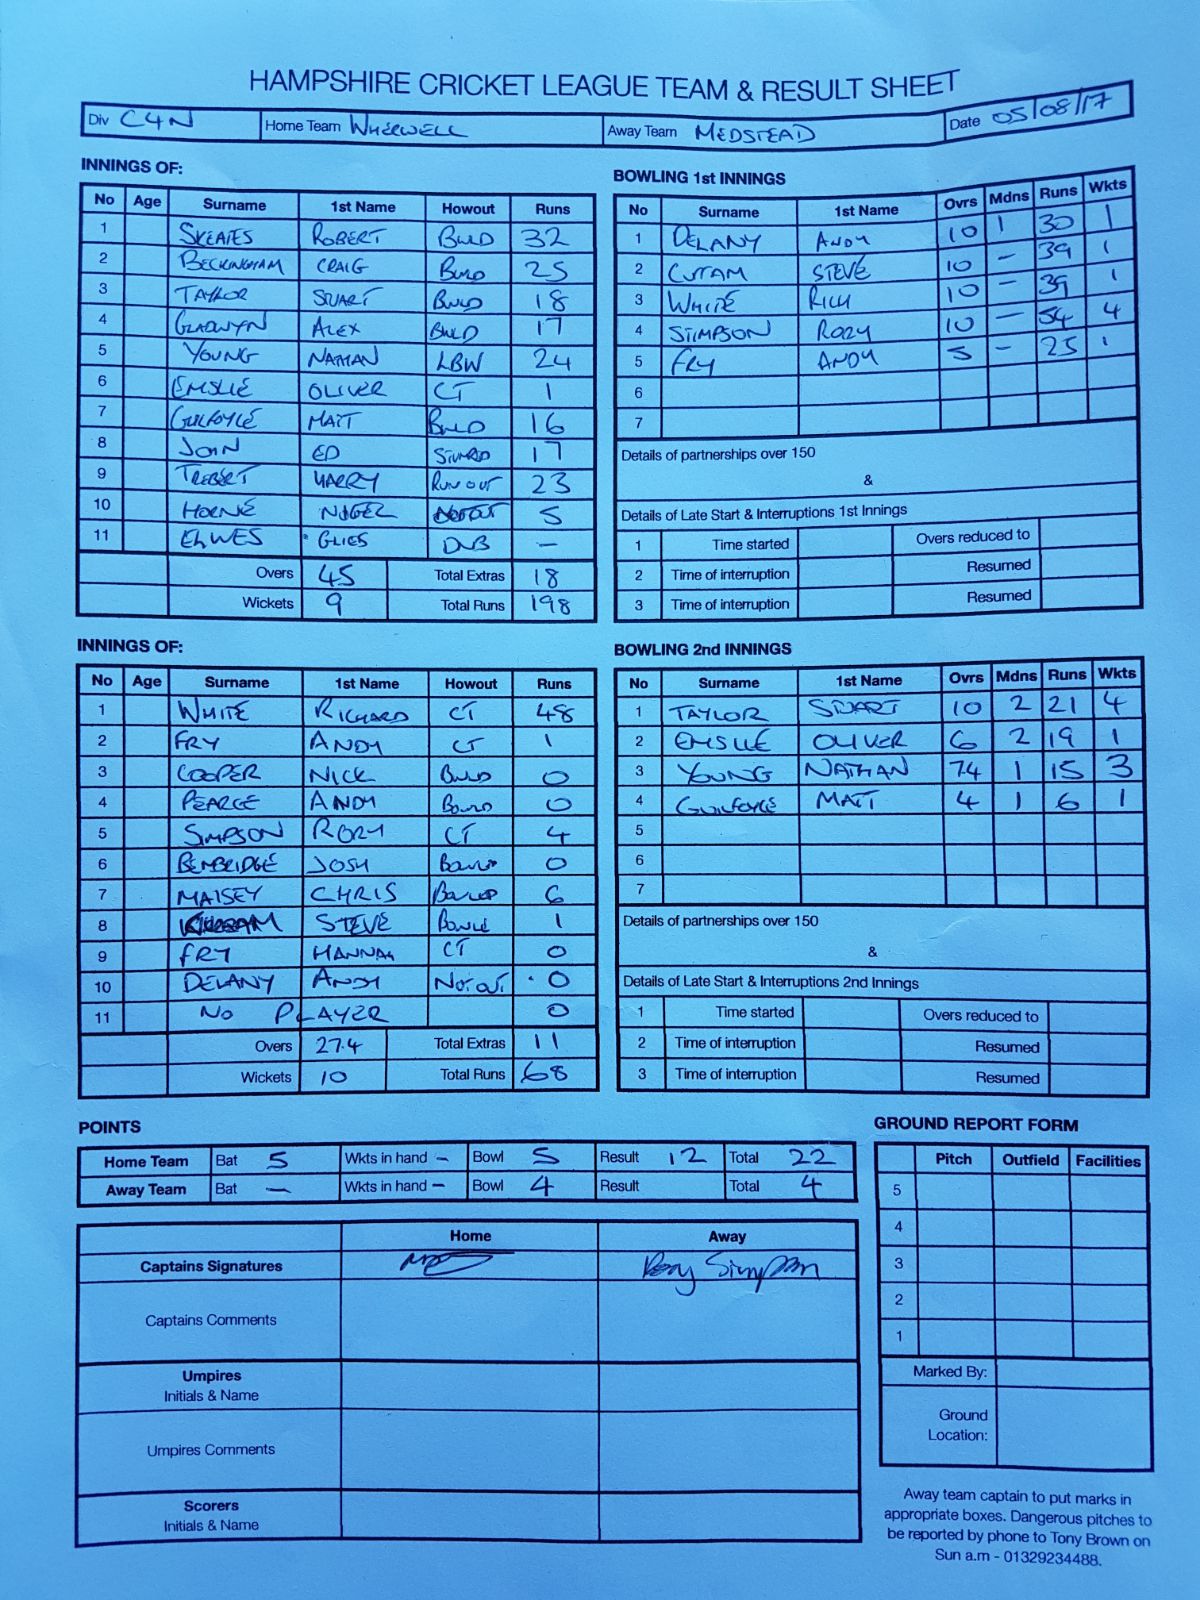 HAMPSHIRE CRICKET LEAGUE TEAM & RESULT SHEET
Div C4N Home Team WHERWELL Away Team MEDSTEAD Date 05/08/17
INNINGS OF:
No Age Surname 1st Name Howout Runs
1 SKEATES ROBERT BWLD 32
2 BECKINGHAM CRAIG BWLD 25
3 TAYLOR STUART BWLD 18
4 GLADWYN ALEX BWLD 17
5 YOUNG NATHAN LBW 24
6 EMSLIE OLIVER CT 1
7 GUILFOYLE MATT BWLD 16
8 JOHN ED STUMPD 17
9 TREBERT HARRY RUN OUT 23
10 HORNE NIGEL NOT OUT 5
11 ELWES GLIES DNB —
Overs 45 Total Extras 18
Wickets 9 Total Runs 198
BOWLING 1st INNINGS
No Surname 1st Name Ovrs Mdns Runs Wkts
1 DELANY ANDY 10 1 30 1
2 CUTAM STEVE 10 — 39 1
3 WHITE RICH 10 — 39 1
4 STIMPSON RORY 10 — 54 4
5 FRY ANDY 5 — 25 1
6
7
Details of partnerships over 150
&
Details of Late Start & Interruptions 1st Innings
1 Time started Overs reduced to
2 Time of interruption Resumed
3 Time of interruption Resumed
INNINGS OF:
No Age Surname 1st Name Howout Runs
1 WHITE RICHARD CT 48
2 FRY ANDY CT 1
3 COOPER NICK BWLD 0
4 PEARCE ANDY BOWLD 0
5 SIMPSON RORY CT 4
6 BEMBRIDGE JOSH BOWLED 0
7 MAISEY CHRIS BOWLED 6
8 STEVE BOWLE 1
9 FRY HANNAH CT 0
10 DELANY ANDY NOT OUT 0
11 NO PLAYER 0
Overs 27.4 Total Extras 11
Wickets 10 Total Runs 68
BOWLING 2nd INNINGS
No Surname 1st Name Ovrs Mdns Runs Wkts
1 TAYLOR STUART 10 2 21 4
2 EMSLIE OLIVER 6 2 19 1
3 YOUNG NATHAN 7.4 1 15 3
4 GUILFOYLE MATT 4 1 6 1
5
6
7
Details of partnerships over 150
&
Details of Late Start & Interruptions 2nd Innings
1 Time started Overs reduced to
2 Time of interruption Resumed
3 Time of interruption Resumed
POINTS
Home Team Bat 5 Wkts in hand — Bowl 5 Result 12 Total 22
Away Team Bat — Wkts in hand — Bowl 4 Result Total 4
Home Away
Captains Signatures Rory Simpson
Captains Comments
Umpires
Initials & Name
Umpires Comments
Scorers
Initials & Name
GROUND REPORT FORM
Pitch Outfield Facilities
5
4
3
2
1
Marked By:
Ground
Location:
Away team captain to put marks in
appropriate boxes. Dangerous pitches to
be reported by phone to Tony Brown on
Sun a.m - 01329234488.